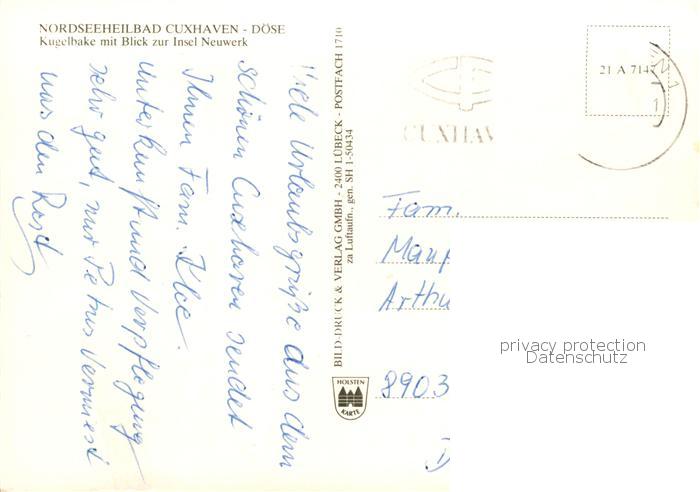 NORDSEEHEILBAD CUXHAVEN - DÖSE
Kugelbake mit Blick zur Insel Neuwerk
Viele Urlaubsgrüße aus dem
schönen Cuxhaven sendet
Ihnen Fam.
Unterkunft und Verpflegung
sehr gut, nur Petrus vermiest
uns den Rest
BILD-DRUCK & VERLAG GMBH - 2400 LÜBECK - POSTFACH 1710
za Luftaufn., gen. SH 1-50434
HOLSTEN
KARTE
CUXHAV
21 A 7147
Fam.
Arthu
8903
privacy protection
Datenschutz